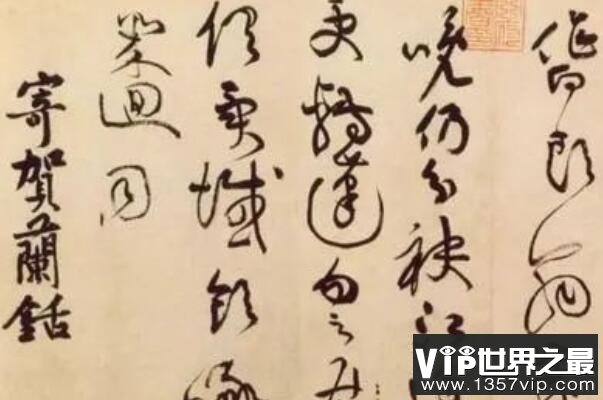 作白頭翁
晚仍分袂江
更轉蓬勿云
俱異域飲啄
幾迴同
寄賀蘭銛
VIP世界之最
www.1357vip.com